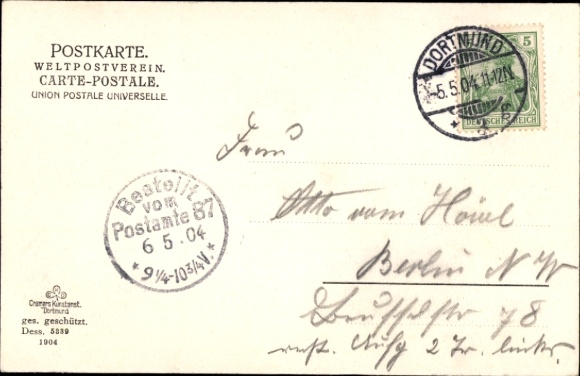 POSTKARTE.
WELTPOSTVEREIN.
CARTE-POSTALE.
UNION POSTALE UNIVERSELLE.
DORTMUND
-5.5.04.11-12N.
5
DEUTSCHES REICH
Frau
Otto vom Hövel
Berlin N W
Brüsselstr 78
Aufg 2 Tr. links.
Bestellt
vom
Postamte 87
6 5.04
* 9 1/4-10 3/4 V. *
Cramers Kunstanst.
Dortmund
ges. geschützt.
Dess. 5339
1904